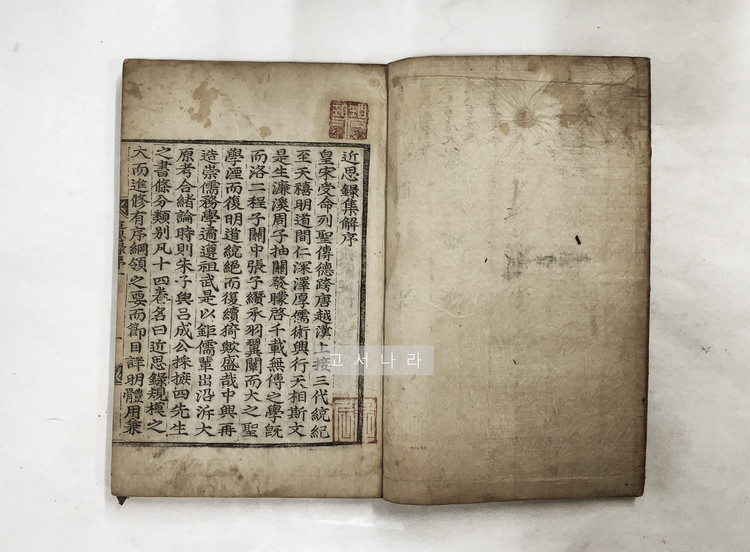 近思錄集解序
皇家受命列聖傳德跨唐越漢上接三代統紀
至天禧明道間仁深澤厚儒術興行天相斯文
是生濂溪周子抽關發矇啓千載無傳之學旣
而洛二程子關中張子纘承羽翼闡而大之聖
學湮而復明道統絕而復續猗歟盛哉中興再
造崇儒務學遹遵祖武是以鉅儒輩出沿泝大
原考合緖論時則朱子與呂成公採摭四先生
之書條分類別凡十四卷名曰近思錄規模之
大而進修有序綱領之要而節目詳明體用兼
고서나라